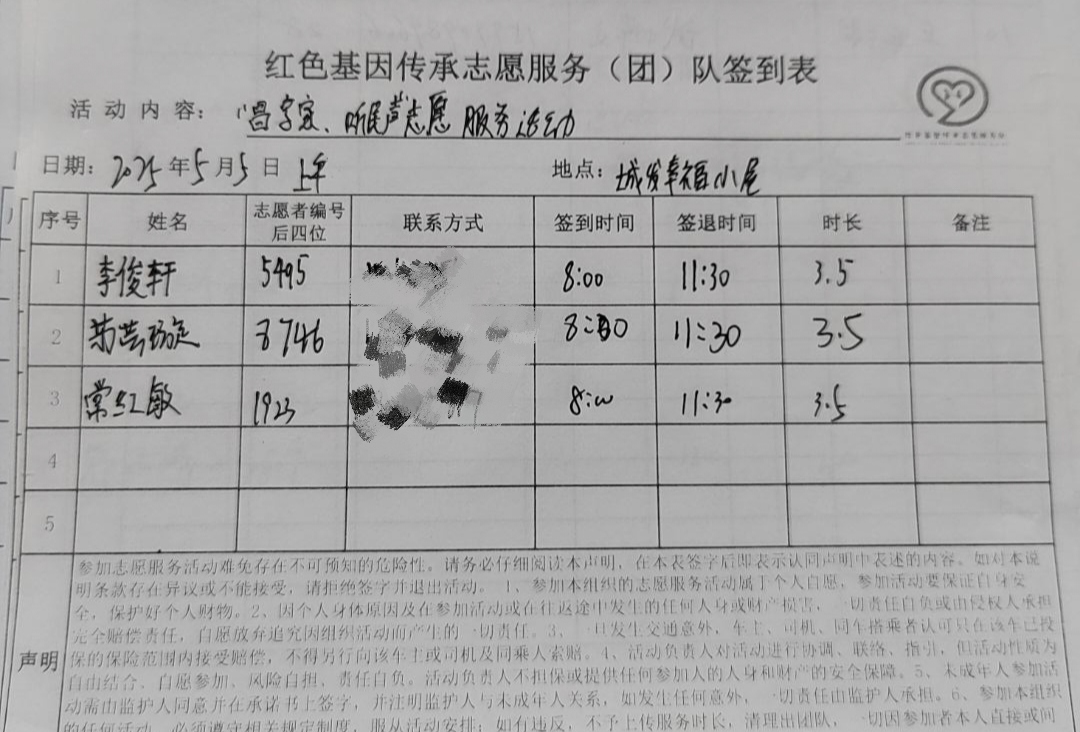 红色基因传承志愿服务（团）队签到表
活动内容：听民声志愿服务活动
日期：2025年5月5日 上午 地点：城发幸福小尾
序号 姓名 志愿者编号后四位 联系方式 签到时间 签退时间 时长 备注
1 李俊轩 5495 8:00 11:30 3.5
2 8746 8:30 11:30 3.5
3 常红敏 1923 8:00 11:30 3.5
4
5
声明
参加志愿服务活动难免存在不可预知的危险性。请务必仔细阅读本声明，在本表签字后即表示认同声明中表述的内容。如对本说
明条款存在异议或不能接受，请拒绝签字并退出活动。1、参加本组织的志愿服务活动属于个人自愿，参加活动要保证自身安
全，保护好个人财物。2、因个人身体原因及在参加活动或在往返途中发生的任何人身或财产损害，一切责任自负或由侵权人承担
完全赔偿责任，自愿放弃追究因组织活动而产生的一切责任。3、一旦发生交通意外，车主、司机、同车搭乘者认可只在该车已投
保的保险范围内接受赔偿，不得另行向该车主或司机及同乘人索赔。4、活动负责人对活动进行协调、联络、指引，但活动性质为
自由结合、自愿参加、风险自担、责任自负。活动负责人不担保或提供任何参加人的人身和财产的安全保障。5、未成年人参加活
动需由监护人同意并在承诺书上签字，并注明监护人与未成年人关系，如发生任何意外，一切责任由监护人承担。6、参加本组织
的任何活动，必须遵守相关规定制度，服从活动安排；如有违反，不予上传服务时长，清理出团队，一切因参加者本人直接或间